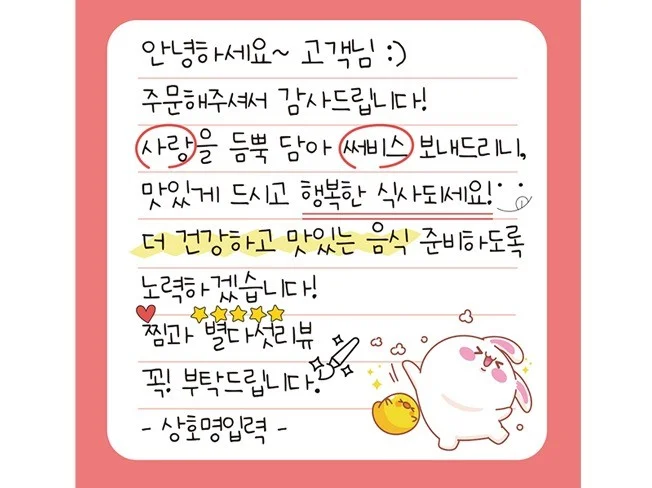 안녕하세요~ 고객님 :)
주문해주셔서 감사드립니다!
사랑을 듬뿍 담아 써비스 보내드리니,
맛있게 드시고 행복한 식사되세요!
더 건강하고 맛있는 음식 준비하도록
노력하겠습니다!
찜과 별다섯리뷰
꼭! 부탁드립니다!
- 상호명입력 -